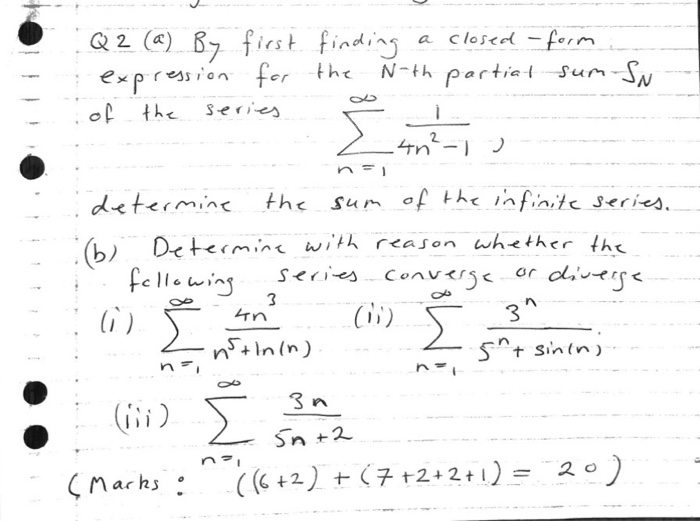 Q2 (a) By first finding a closed-form
expression for the N-th partial sum S_N
of the series
∑_{n=1}^{∞} 1/(4n²-1) ,
determine the sum of the infinite series.
(b) Determine with reason whether the
following series converge or diverge
(i) ∑_{n=1}^{∞} 4n³/(n⁵+ln(n)) (ii) ∑_{n=1}^{∞} 3ⁿ/(5ⁿ+sin(n))
(iii) ∑_{n=1}^{∞} 3n/(5n+2)
(Marks : ((6+2) + (7+2+2+1) = 20)